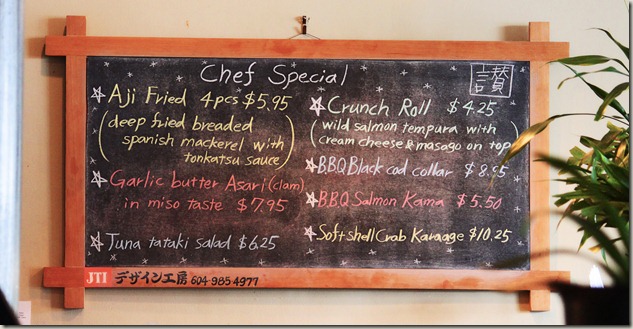 Chef Special
讃
Aji Fried 4pcs $5.95
(deep fried breaded
spanish mackerel with
tonkatsu sauce)
Garlic butter Asari (clam)
in miso taste $7.95
Tuna tataki salad $6.25
Crunch Roll $4.25
(wild salmon tempura with
cream cheese & masago on top)
B.B.Q Black cod collar $8.95
B.B.Q Salmon Kama $5.50
Soft shell Crab Karaage $10.25
JTI デザイン工房 604-985-4977